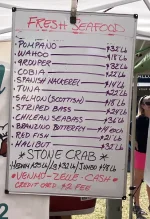 FRESH SEAFOOD
POMPANO $32 LB
WAHOO $18 LB
GROUPER $32 LB
COBIA $22 LB
SPANISH MACKEREL $14 LB
TUNA $22 LB
SALMON (SCOTTISH) $18 LB
STRIPED BASS
CHILEAN SEABASS $36 LB
BRANZINO BUTTERFLY
RED FISH
HALIBUT $32 LB
*STONE CRAB*
*VENMO - ZELLE - CASH*
CREDIT CARD $2 FEE